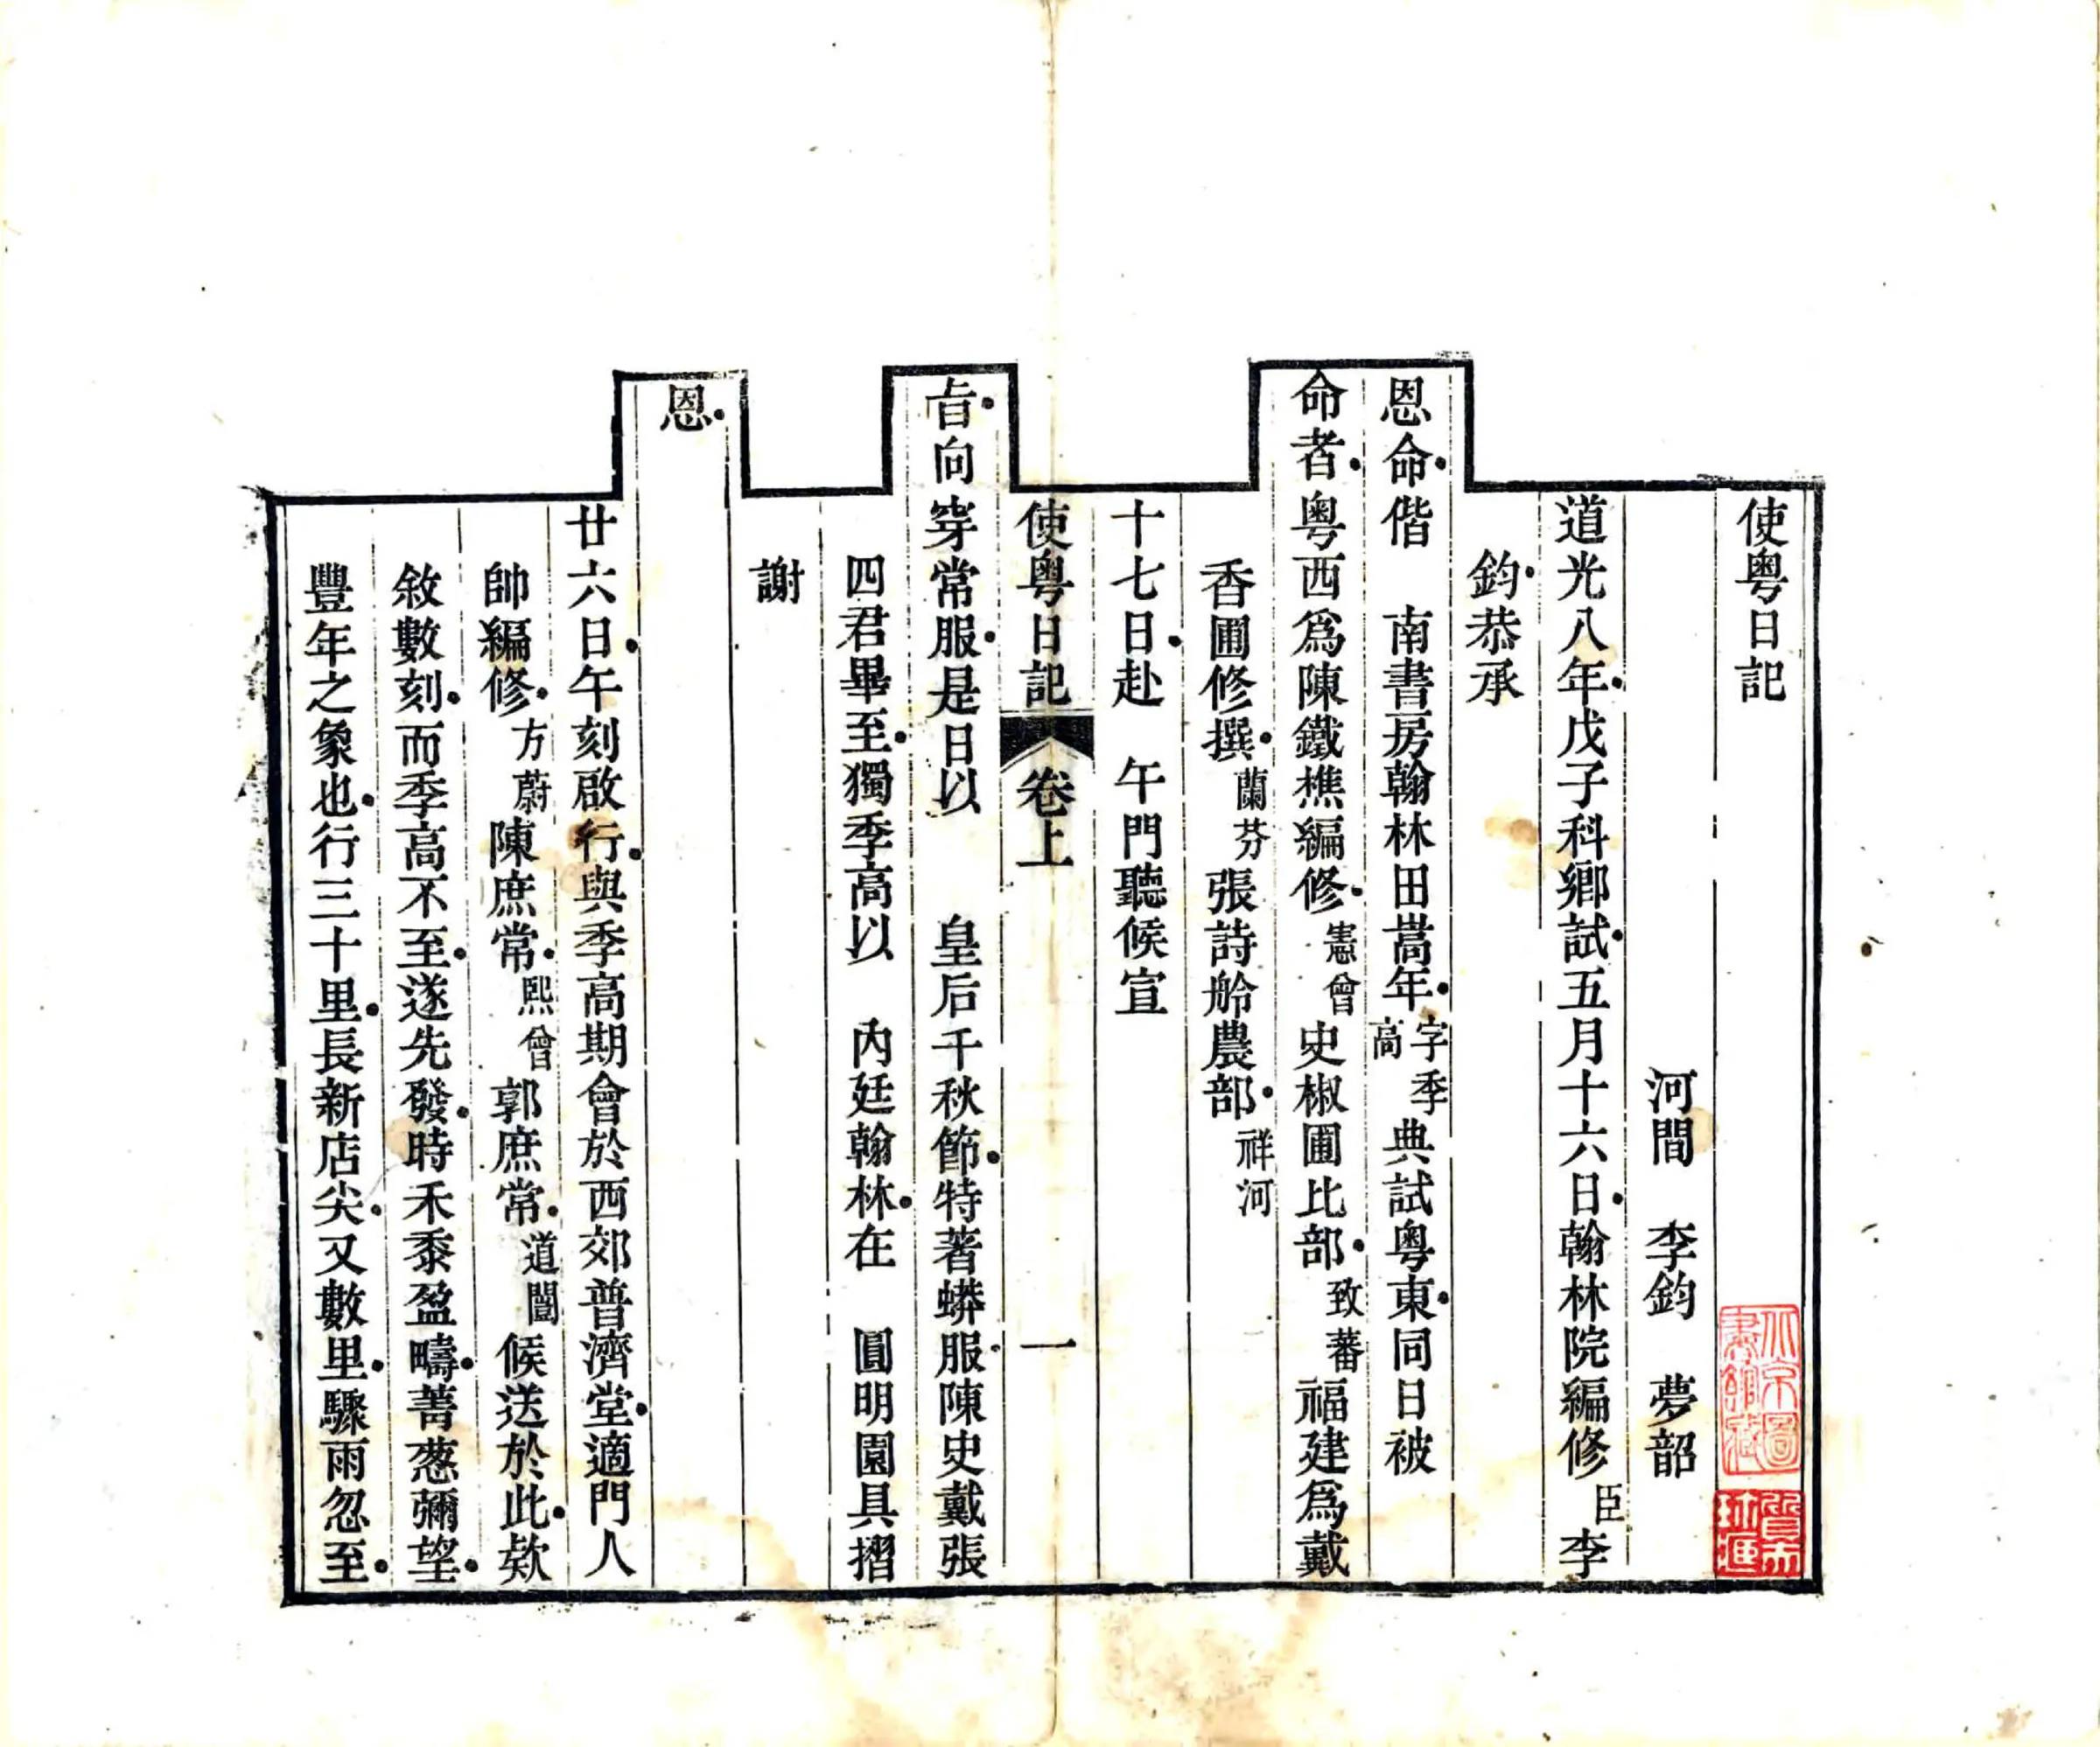 使粤日記
河間 李鈞 夢韶
道光八年戊子科鄉試五月十六日翰林院編修臣李
鈞恭承
恩命偕 南書房翰林田嵩年字季高典試粤東同日被
命者粤西爲陳鐵樵編修憲曾史椒圃比部致蕃福建爲戴
香圃修撰蘭芬張詩舲農部祥河
十七日赴 午門聽候宣
使粤日記 卷上 一
旨向穿常服是日以 皇后千秋節特著蟒服陳史戴張
四君畢至獨季高以 內廷翰林在 圓明園具摺
謝
恩
廿六日午刻啟行與季高期會於西郊普濟堂適門人
帥編修方蔚陳庶常熙曾郭庶常道闓候送於此欵
敘數刻而季高不至遂先發時禾黍盈疇菁葱彌望
豐年之象也行三十里長新店尖又數里驟雨忽至
北京圖書館藏